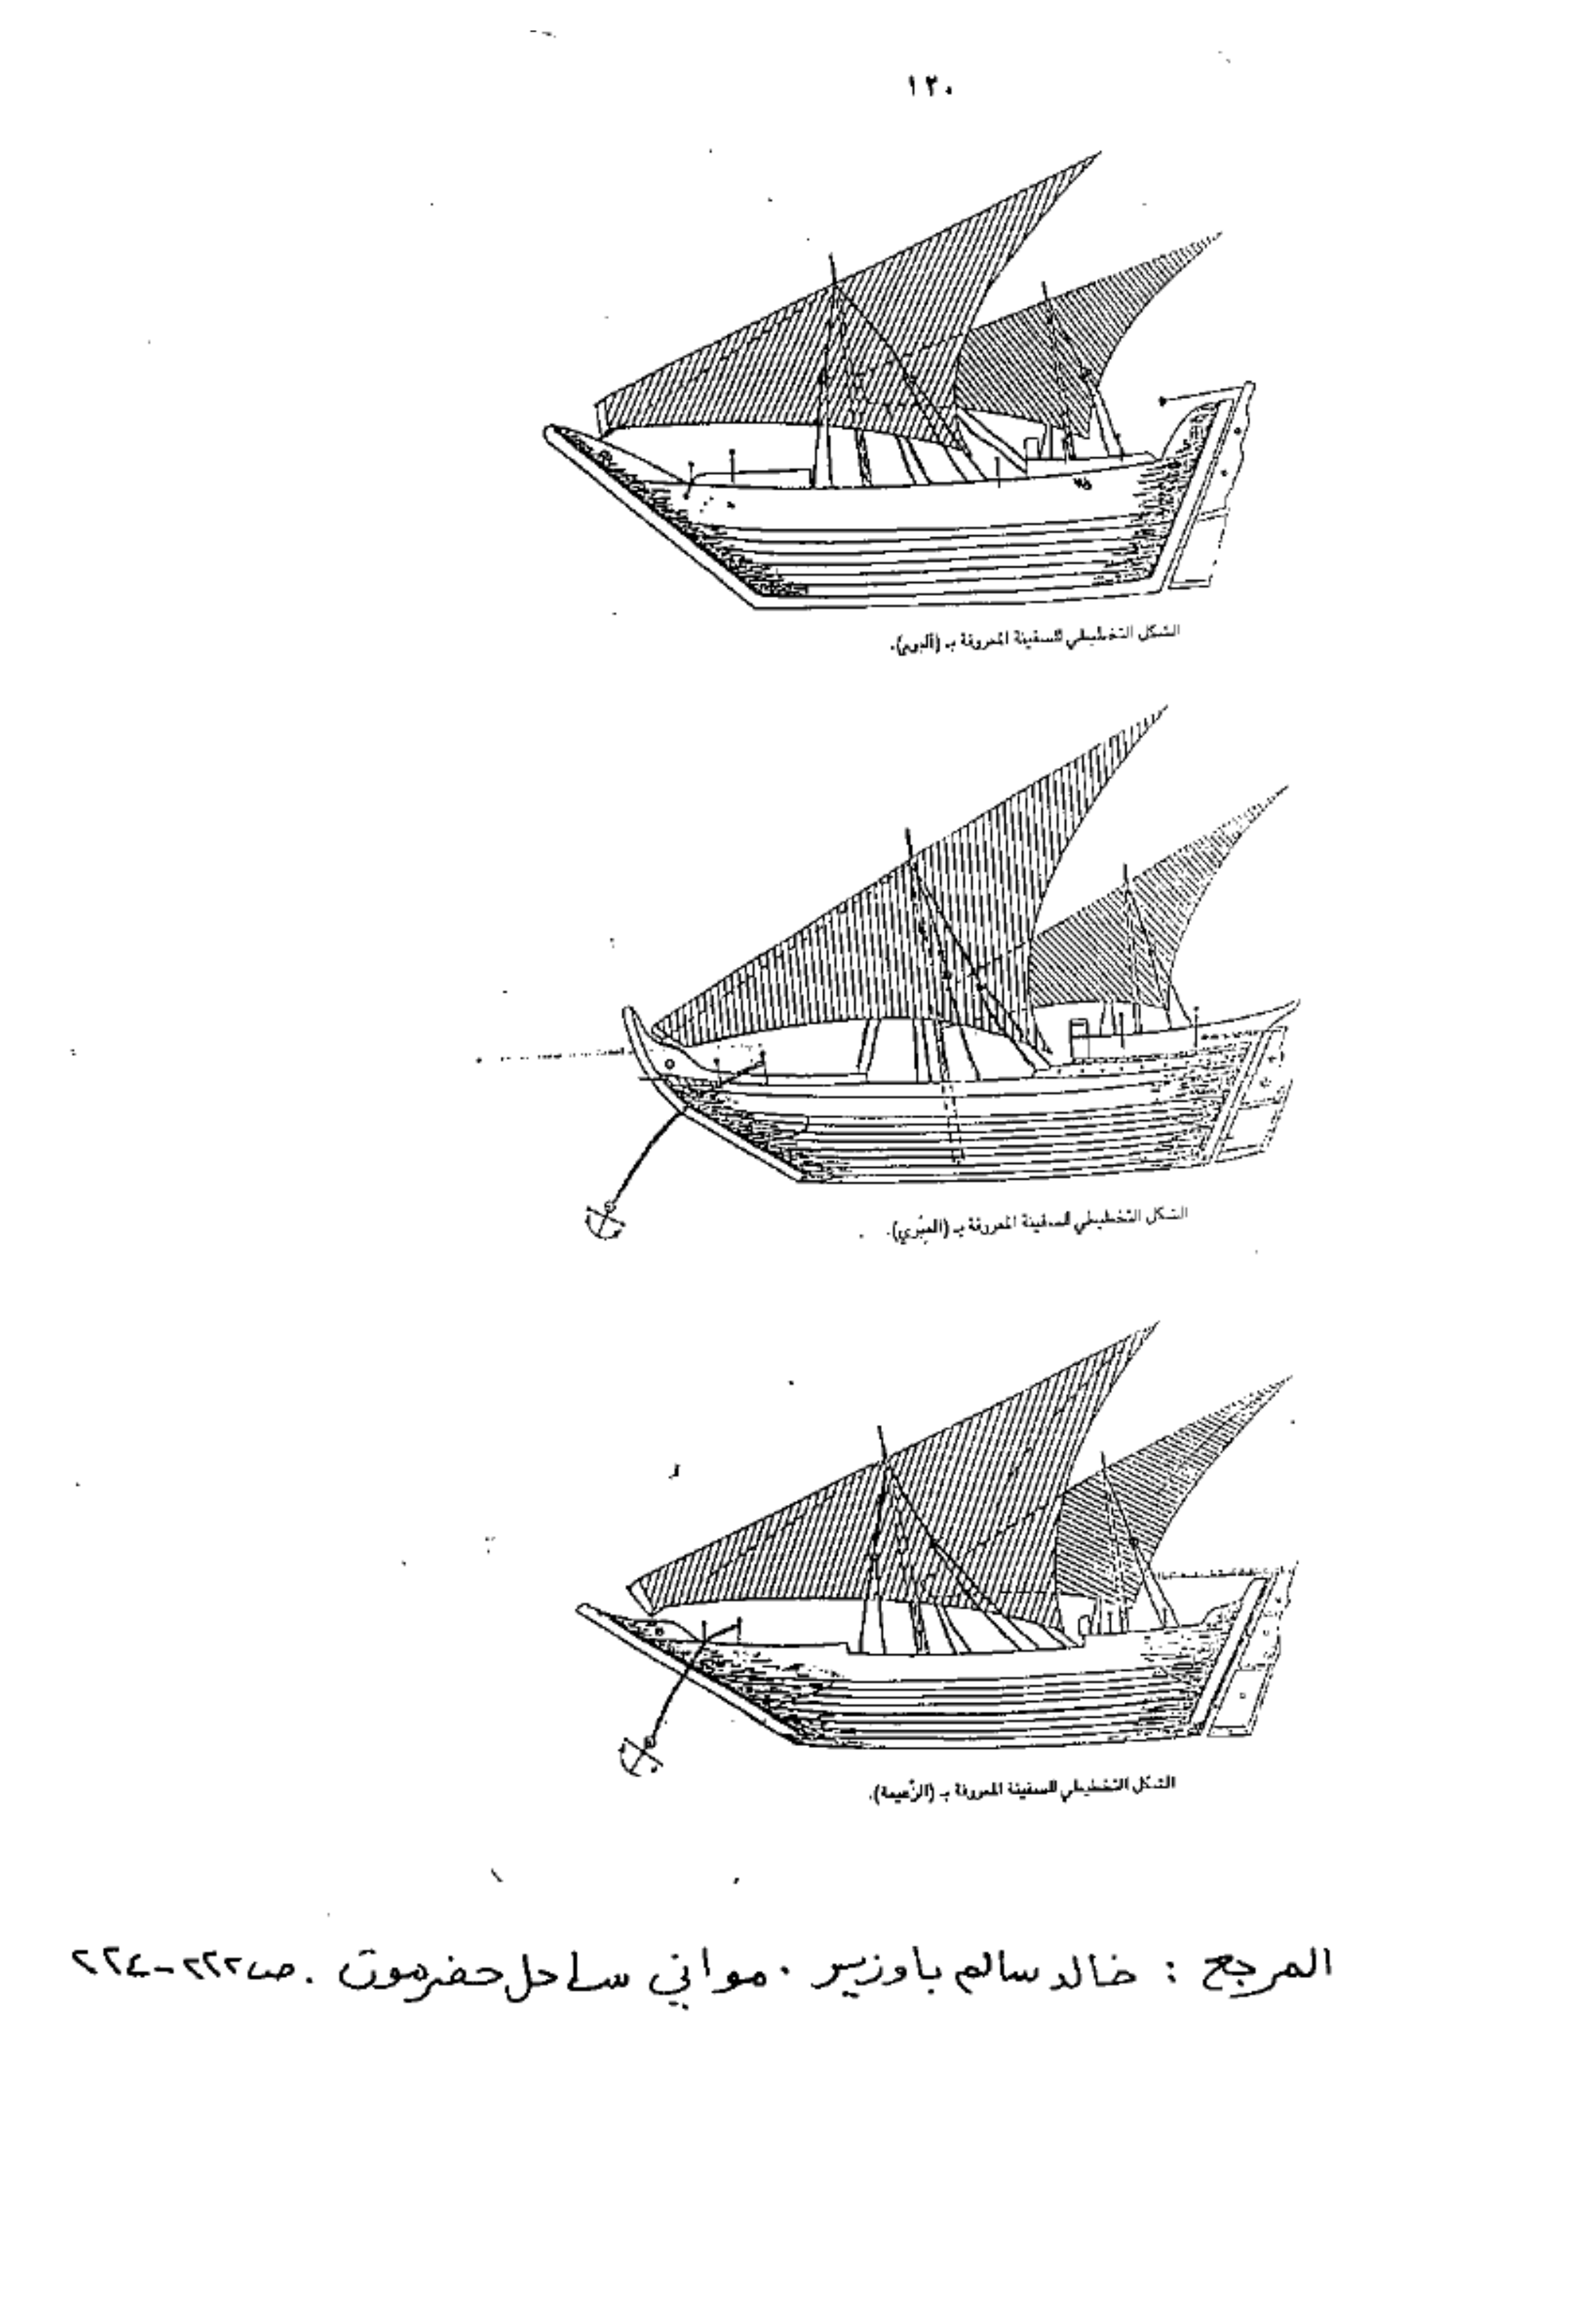 ١٢٠
الشكل التخطيطي للسفينة المعروفة بـ (البوم).
الشكل التخطيطي للسفينة المعروفة بـ (العبري).
الشكل التخطيطي للسفينة المعروفة بـ (الزعيمة).
المرجع : خالد سالم باوزير . مواني ساحل حضرموت . ص٢٢٢-٢٢٤